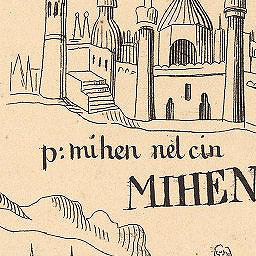 p: mihen nel cin
MIHEN